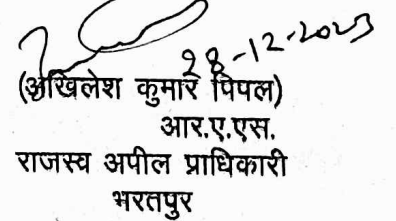 28-12-2023
(अखिलेश कुमार पिपल)
आर.ए.एस.
राजस्व अपील प्राधिकारी
भरतपुर